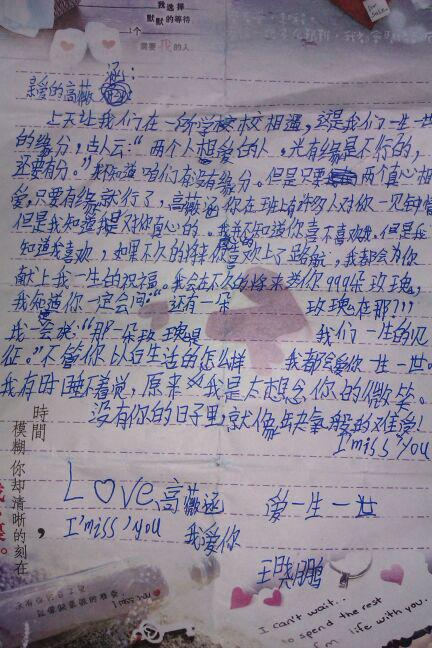 我选择
默默的等待
1个
需要我的人
亲爱的高薇涵:
上天让我们在一所学校相遇,这是我们一生一世
的缘分,古人云:“两个人想爱的人,光有缘是不行的,
还要有分。”我知道咱们有没有缘分。但是只要两个真心相
爱,只要有缘就行了,高薇涵你在班上有许多人对你一见钟情
但是我知道我是对你真心的。我不知道你喜不喜欢我,但是我
知道我喜欢,如果不久的将来你喜欢上了路航,我都会为你
献上我一生的祝福。我会在不久的将来送你999朵玫瑰,
我知道你一定会问“还有一朵玫瑰在那?!!
我会说:“那一朵玫瑰是我们一生的见
证。”不管你以后生活的怎么样 我都会爱你一生一世。
我有时睡不着觉,原来是我是太想念你的微笑。
没有你的日子里,就像缺氧般的难受!
I'miss'you
Love高薇涵 爱一生一世
I'miss'you 我爱你
王晓鹏
時間
模糊你却清晰的刻在
I can't wait...
to spend the rest
of my life with you.